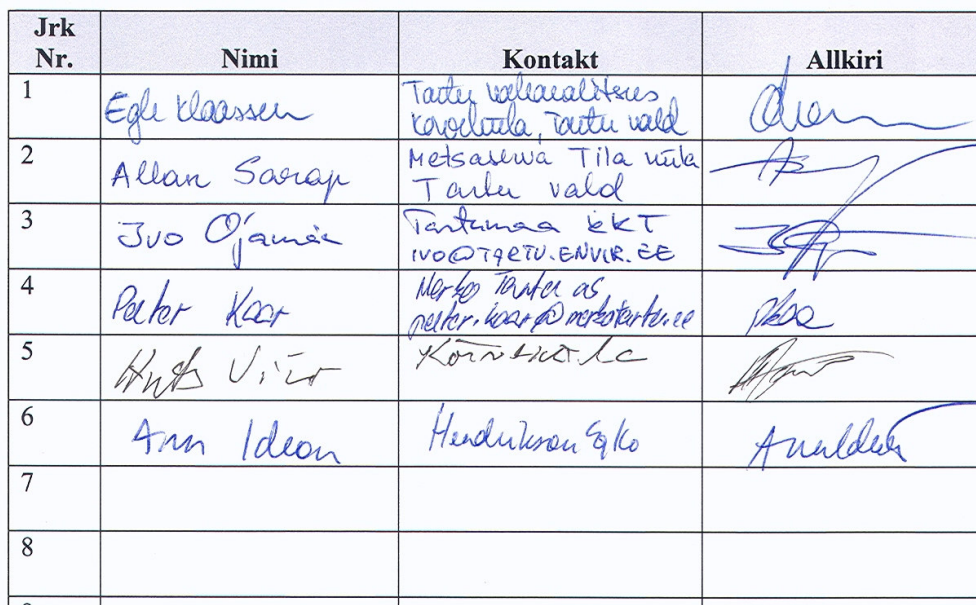 Jrk
Nr. Nimi Kontakt Allkiri
1 Egle Klaassen Tartu vallavalitsus
Tartu vald
2 Allan Sarap Metsaserva Tila küla
Tartu vald
3 Ivo Ojamäe Tartumaa KKT
IVO@TARTU.ENVIR.EE
4 Peeter Kaar Merko Tartu as
peeter.kaar@merkotartu.ee
5
6 Ann Ideon Hendrikson & Ko
7
8